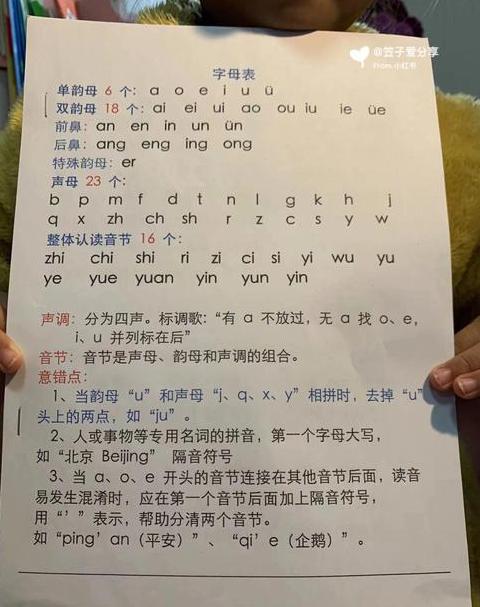 @笠子爱分享
From 小红书
字母表
单韵母 6 个： a o e i u ü
双韵母 18 个：ai ei ui ao ou iu ie üe
前鼻：an en in un ün
后鼻：ang eng ing ong
特殊韵母：er
声母 23 个：
b p m f d t n l g k h j
q x zh ch sh r z c s y w
整体认读音节 16 个：
zhi chi shi ri zi ci si yi wu yu
ye yue yuan yin yun yin
声调：分为四声。标调歌：“有 a 不放过，无 a 找 o、e，
i、u 并列标在后”
音节：音节是声母、韵母和声调的组合。
意错点：
1、当韵母“u”和声母“j、q、x、y”相拼时，去掉“u”
头上的两点，如“ju”。
2、人或事物等专用名词的拼音，第一个字母大写，
如“北京 Beijing” 隔音符号
3、当 a、o、e 开头的音节连接在其他音节后面，读音
易发生混淆时，应在第一个音节后面加上隔音符号，
用“’”表示，帮助分清两个音节。
如“ping’an（平安）”、“qi’e（企鹅）”。